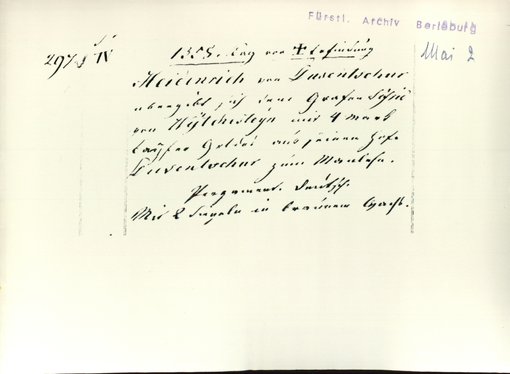 Fürstl. Archiv Berleburg
297 IV
1358. Tag vor ☩ Erfindung
Mai 2
Heidenrich von Dusentschur
übergibt sich dem Grafen
von mit 4 mark
Geldes aus seinem Hofe
Dusentschur zum Manlehn.
Pergament. Deutsch.
Mit 2 Siegeln in braunem Wachs.